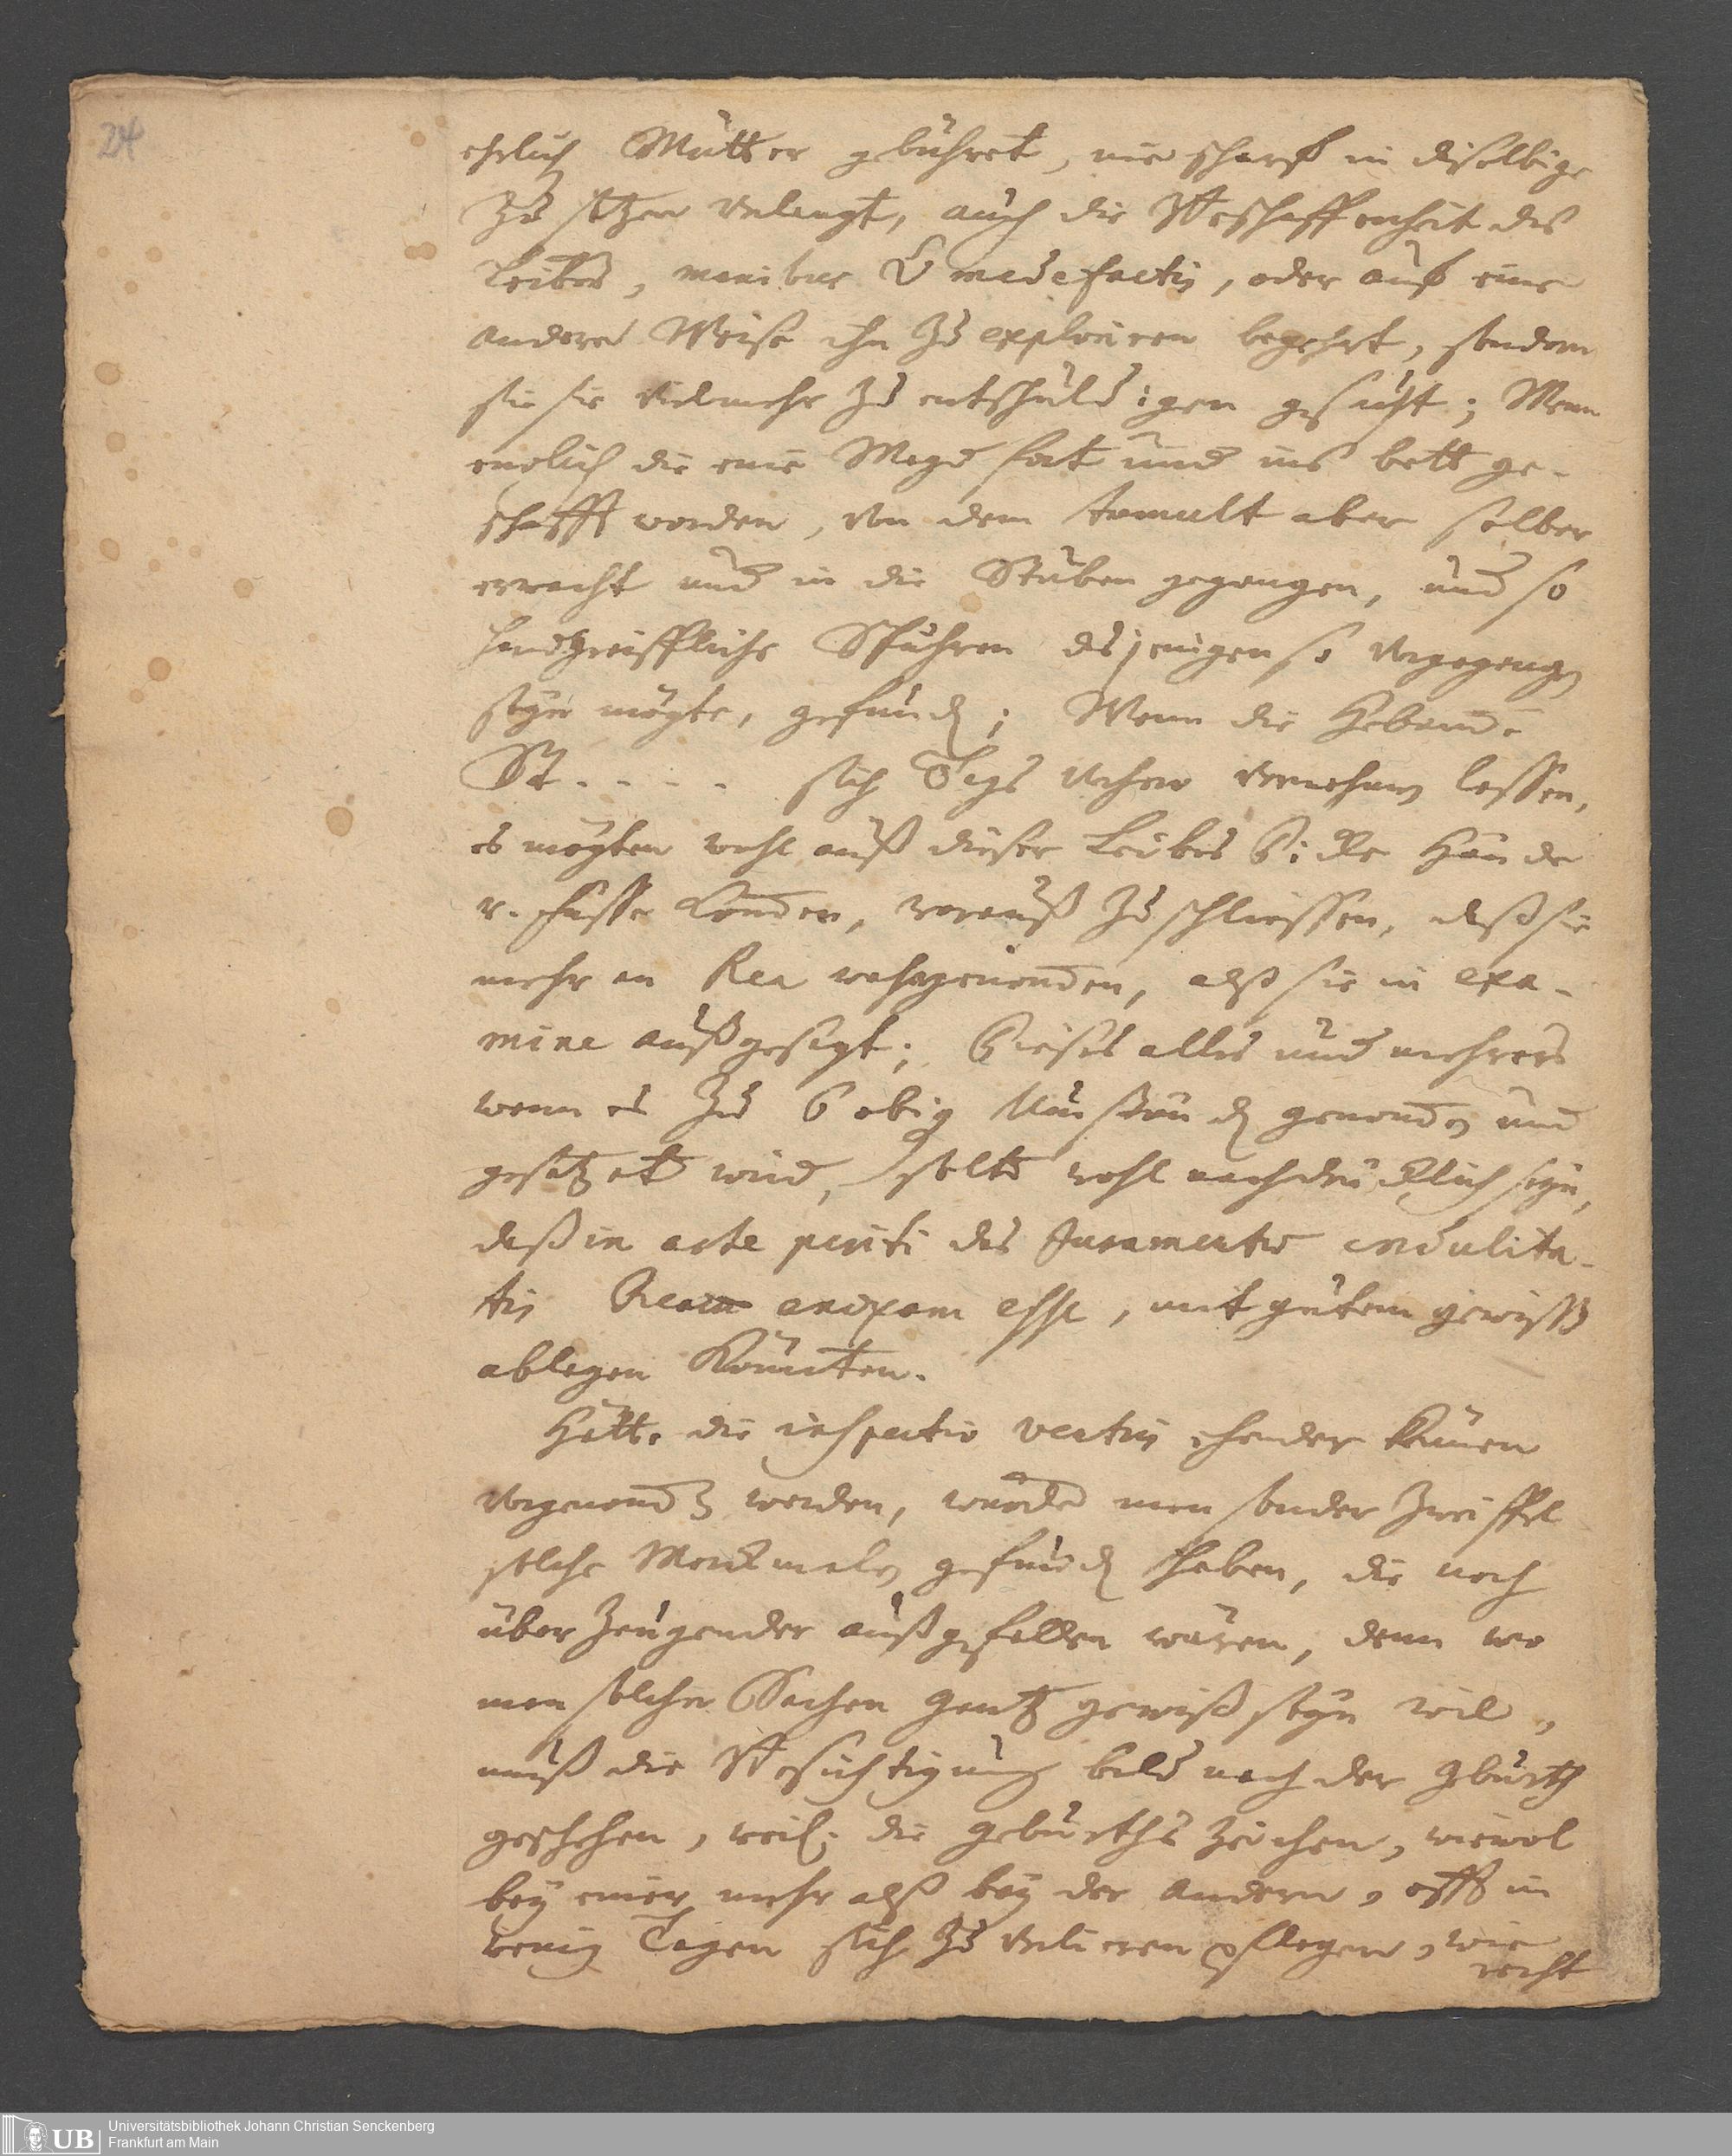 24
ehrlich Mutter gebühret, nie scharf in dieselbige
zu setzen verlangt, auch die Beschaffenheit des
Leibes, manibus madefactis, oder auf eine
andere Weise ihr zu exploriren begehrt, sondern
sie vielmehr zu entschuldigen gesucht; Wenn
endlich die eine Magd fort und ins bett ge-
schafft worden, von dem tumult aber selber
erwacht und in die Stuben gegangen, und so
handgreiffliche Spuhren desjenigen so vorgegangen
seyn mögte, gefunden; Wenn die Hebamme
St. . . . . sich Tags vorher vernehmen lassen,
es mögten wohl auß dieser Leibes Hände
u. füsse kommen, worauß zu schliessen, daß sie
mehr an Rea wahrgenommen, alß sie in exa-
mine außgesagt; Dieses alles und mehrers
wenn es zu obig Umständen genommen und
gesetzet wird, solte wohl nachdrücklich seyn,
daß in arte periti das Juramentum credulita-
tis Ream esse, mit gutem gewissen
ablegen könnten.
Hätte die inspectio ventris ehender können
vorgenommen werden, würde man sonder Zweiffel
solche Merckmale gefunden haben, die noch
überzeugender außgefallen wären, denn wo
man solcher Sachen gantz gewiß seyn will,
muß die Besichtigung bald nach der Geburth
geschehen, weil die geburths Zeichen, wiewol
bey einer mehr alß bey der andern, offt in
wenig Tagen sich zu verlieren pflegen, wie
recht
UB
Universitätsbibliothek Johann Christian Senckenberg
Frankfurt am Main